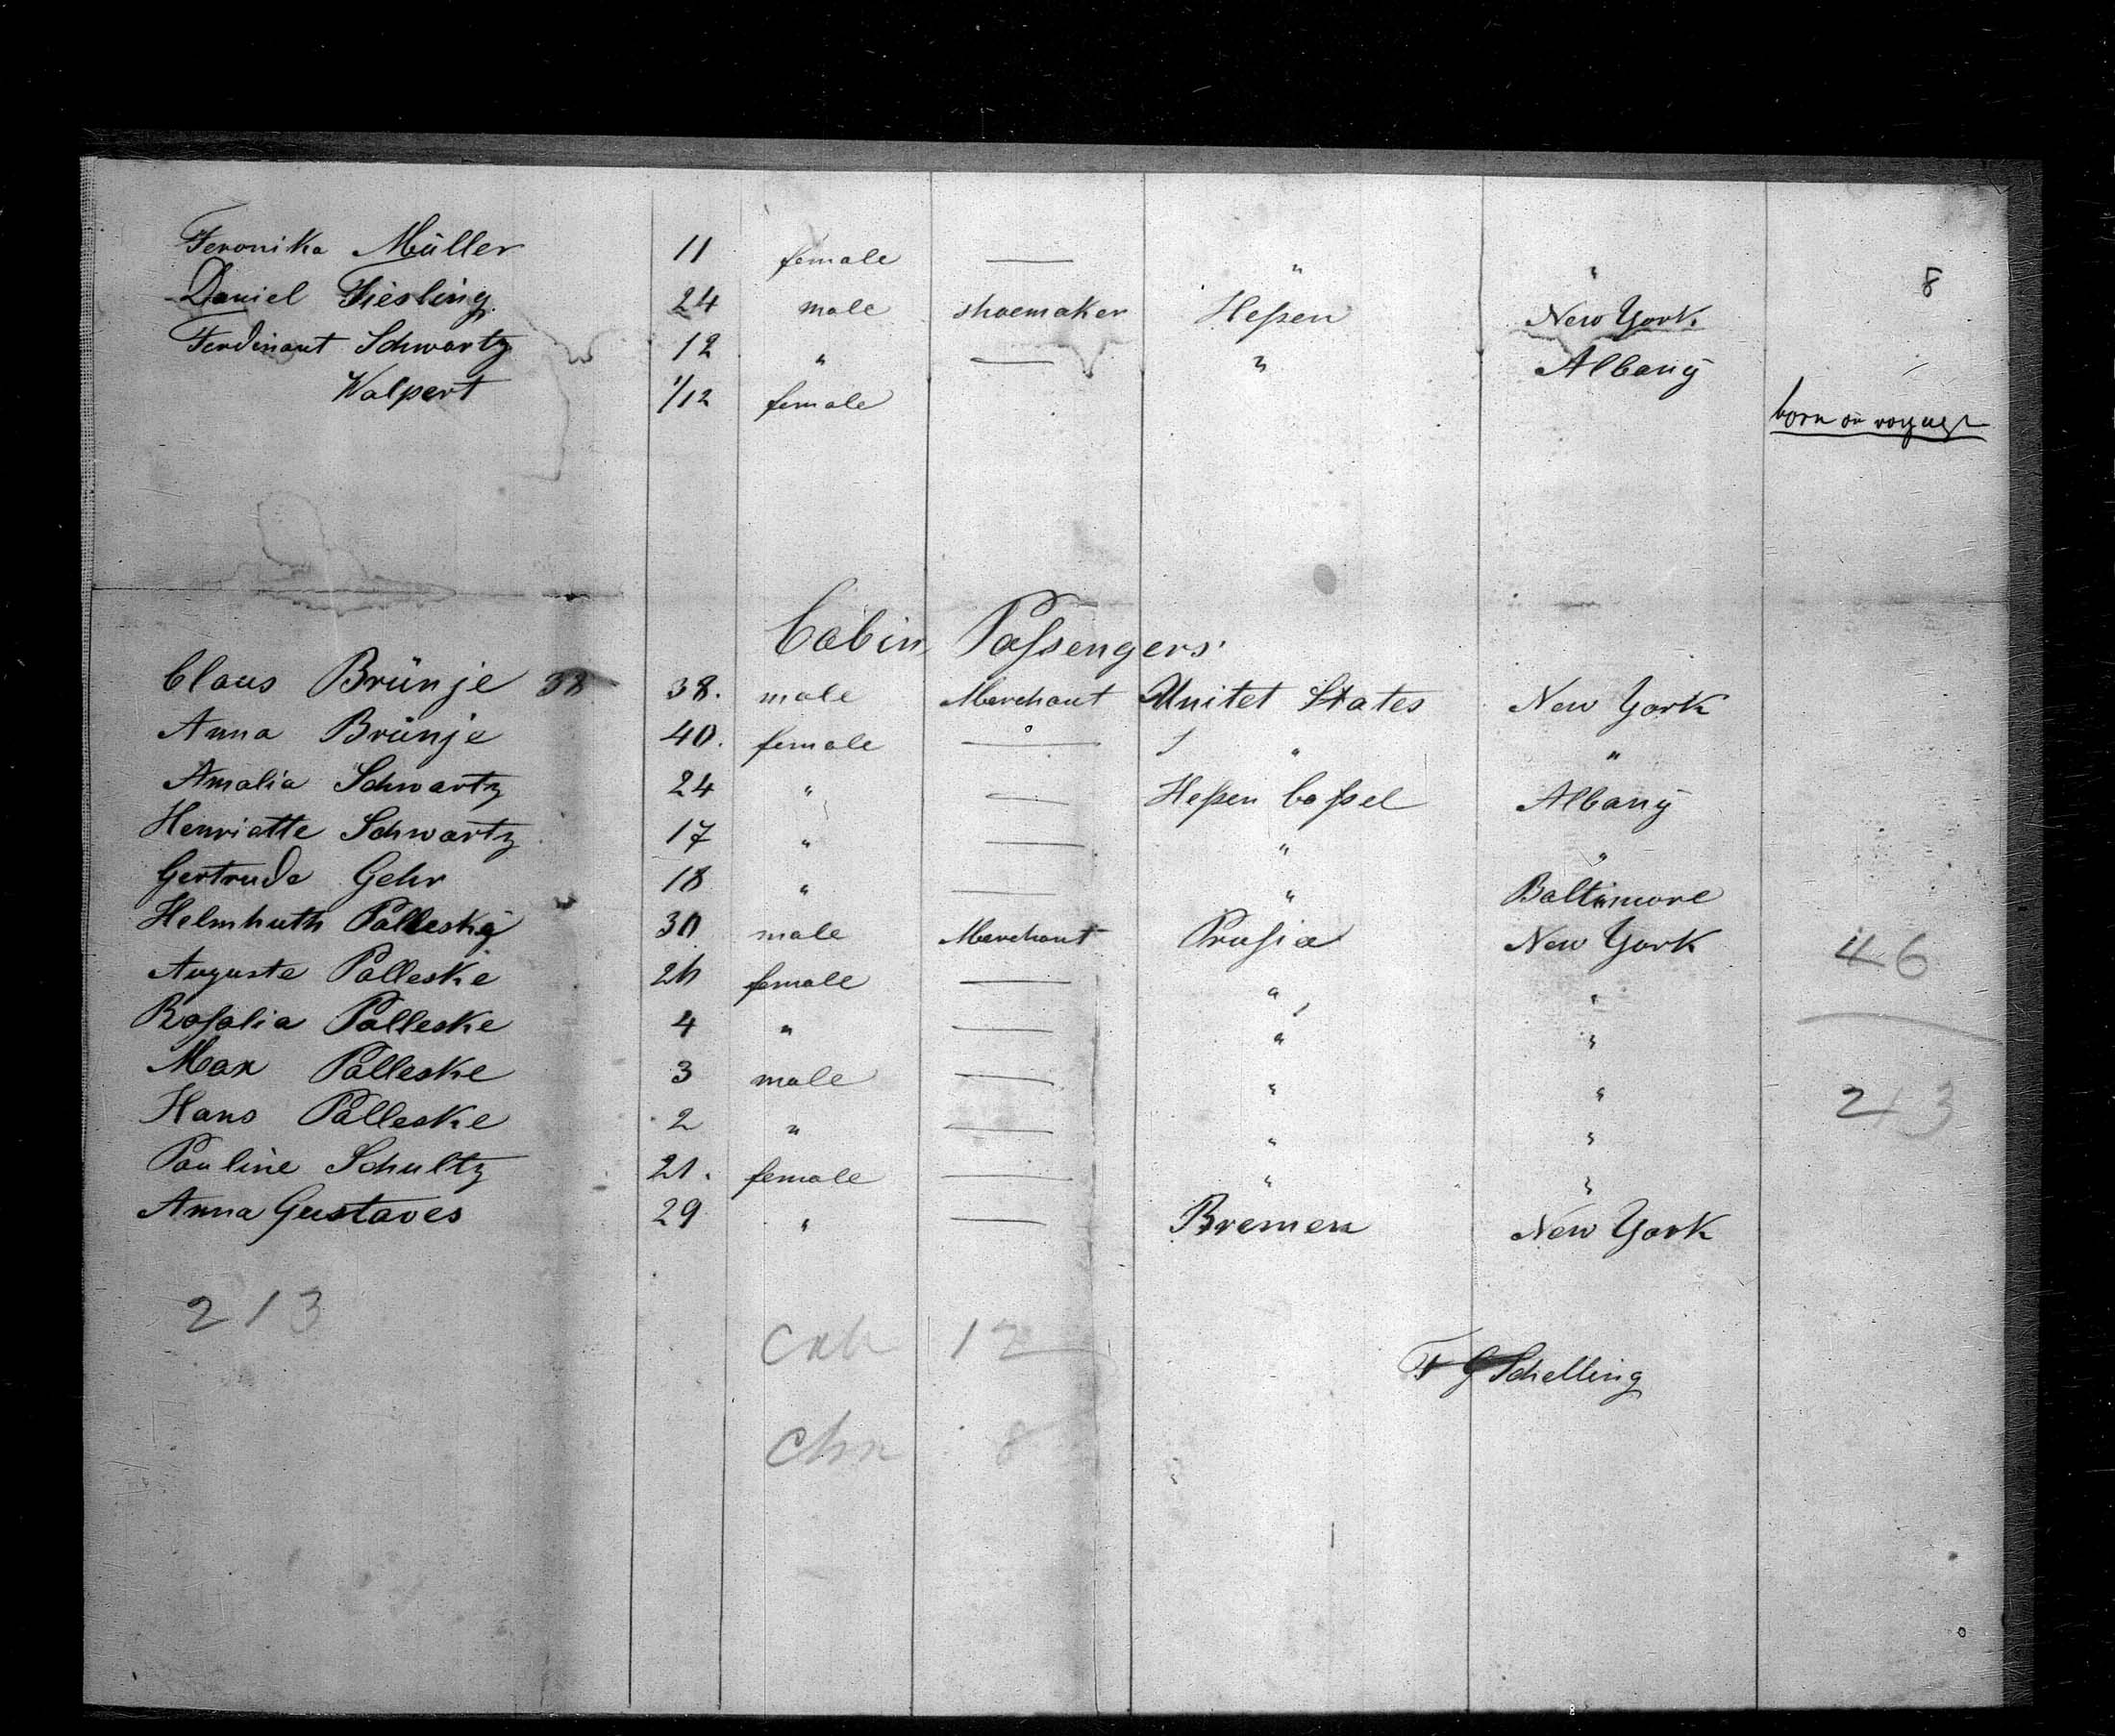 Feronika Müller 11 female — " "
8
Daniel Fiesling 24 male shoemaker Heſsen New York
Ferdinant Schwartz 12 " — " Albany
Walpert 1/12 female born on voyage
Cabin Paſsengers
Claus Brünje 38 38. male Merchant Unitet States New York
Anna Brünje 40. female — " "
Amalia Schwartz 24 " — Heſsen Caſsel Albany
Henriette Schwartz 17 " — " "
Gertrude Gehr 18 " — " Baltimore
Helmhuth Palleske 30 male Merchant Pruſsia New York
46
Auguste Palleske female — " "
Roſalia Palleske 4 " — " "
Max Palleske 3 male — " "
213
Hans Palleske 2 " — " "
Pauline Schultz 21. female — " "
Anna Gustaves 29 " — Bremen New York
213
Cab 12
Schelling
Chn 8